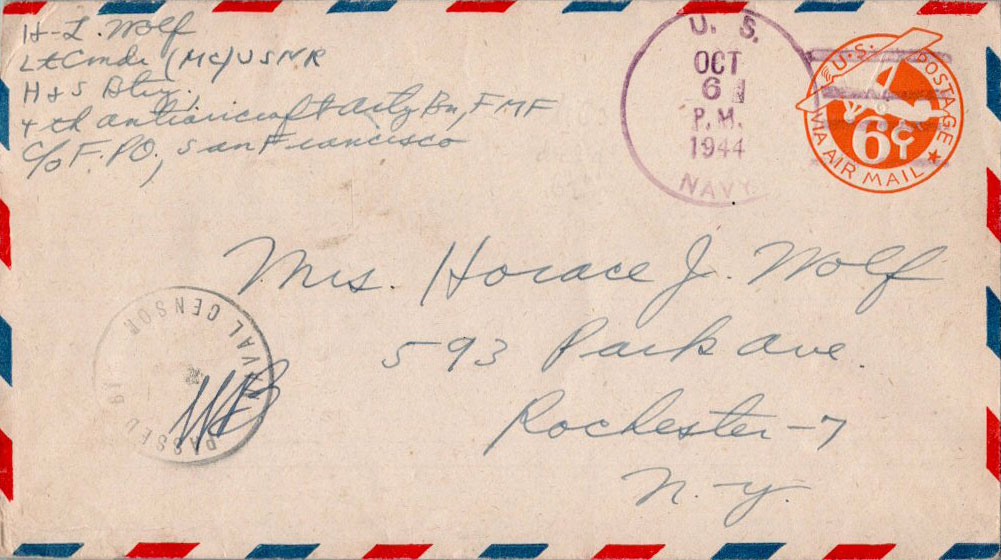 H-L. Wolf
Lt Comdr (MC) USNR
H & S Btry.
4th Antiaircraft Arty Bn, FMF
c/o F.PO., San Francisco
U. S.
OCT
6
P.M.
1944
NAVY
U.S. POSTAGE
6¢
VIA AIR MAIL
Mrs. Horace J. Wolf
593 Park Ave.
Rochester-7
N.Y.
PASSED BY
NAVAL CENSOR